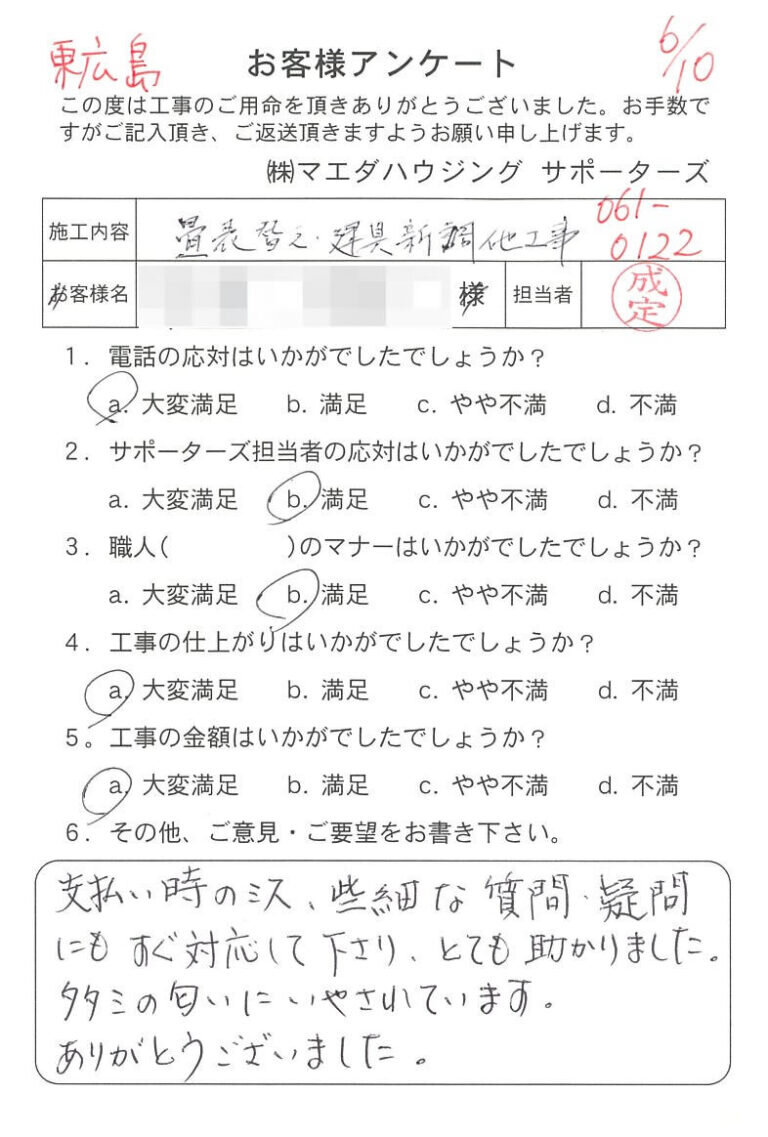 東広島
お客様アンケート
6/10
この度は工事のご用命を頂きありがとうございました。お手数で
すがご記入頂き、ご返送頂きますようお願い申し上げます。
㈱マエダハウジング サポーターズ
施工内容 畳表替え・建具新調他工事 061-0122
お客様名 様 担当者 成定
1. 電話の応対はいかがでしたでしょうか？
a. 大変満足 b. 満足 c. やや不満 d. 不満
2. サポーターズ担当者の応対はいかがでしたでしょうか？
a. 大変満足 b. 満足 c. やや不満 d. 不満
3. 職人( )のマナーはいかがでしたでしょうか？
a. 大変満足 b. 満足 c. やや不満 d. 不満
4. 工事の仕上がりはいかがでしたでしょうか？
a. 大変満足 b. 満足 c. やや不満 d. 不満
5。工事の金額はいかがでしたでしょうか？
a. 大変満足 b. 満足 c. やや不満 d. 不満
6. その他、ご意見・ご要望をお書き下さい。
支払い時のミス、些細な質問・疑問
にもすぐ対応して下さり、とても助かりました。
タタミの匂いにいやされています。
ありがとうございました。